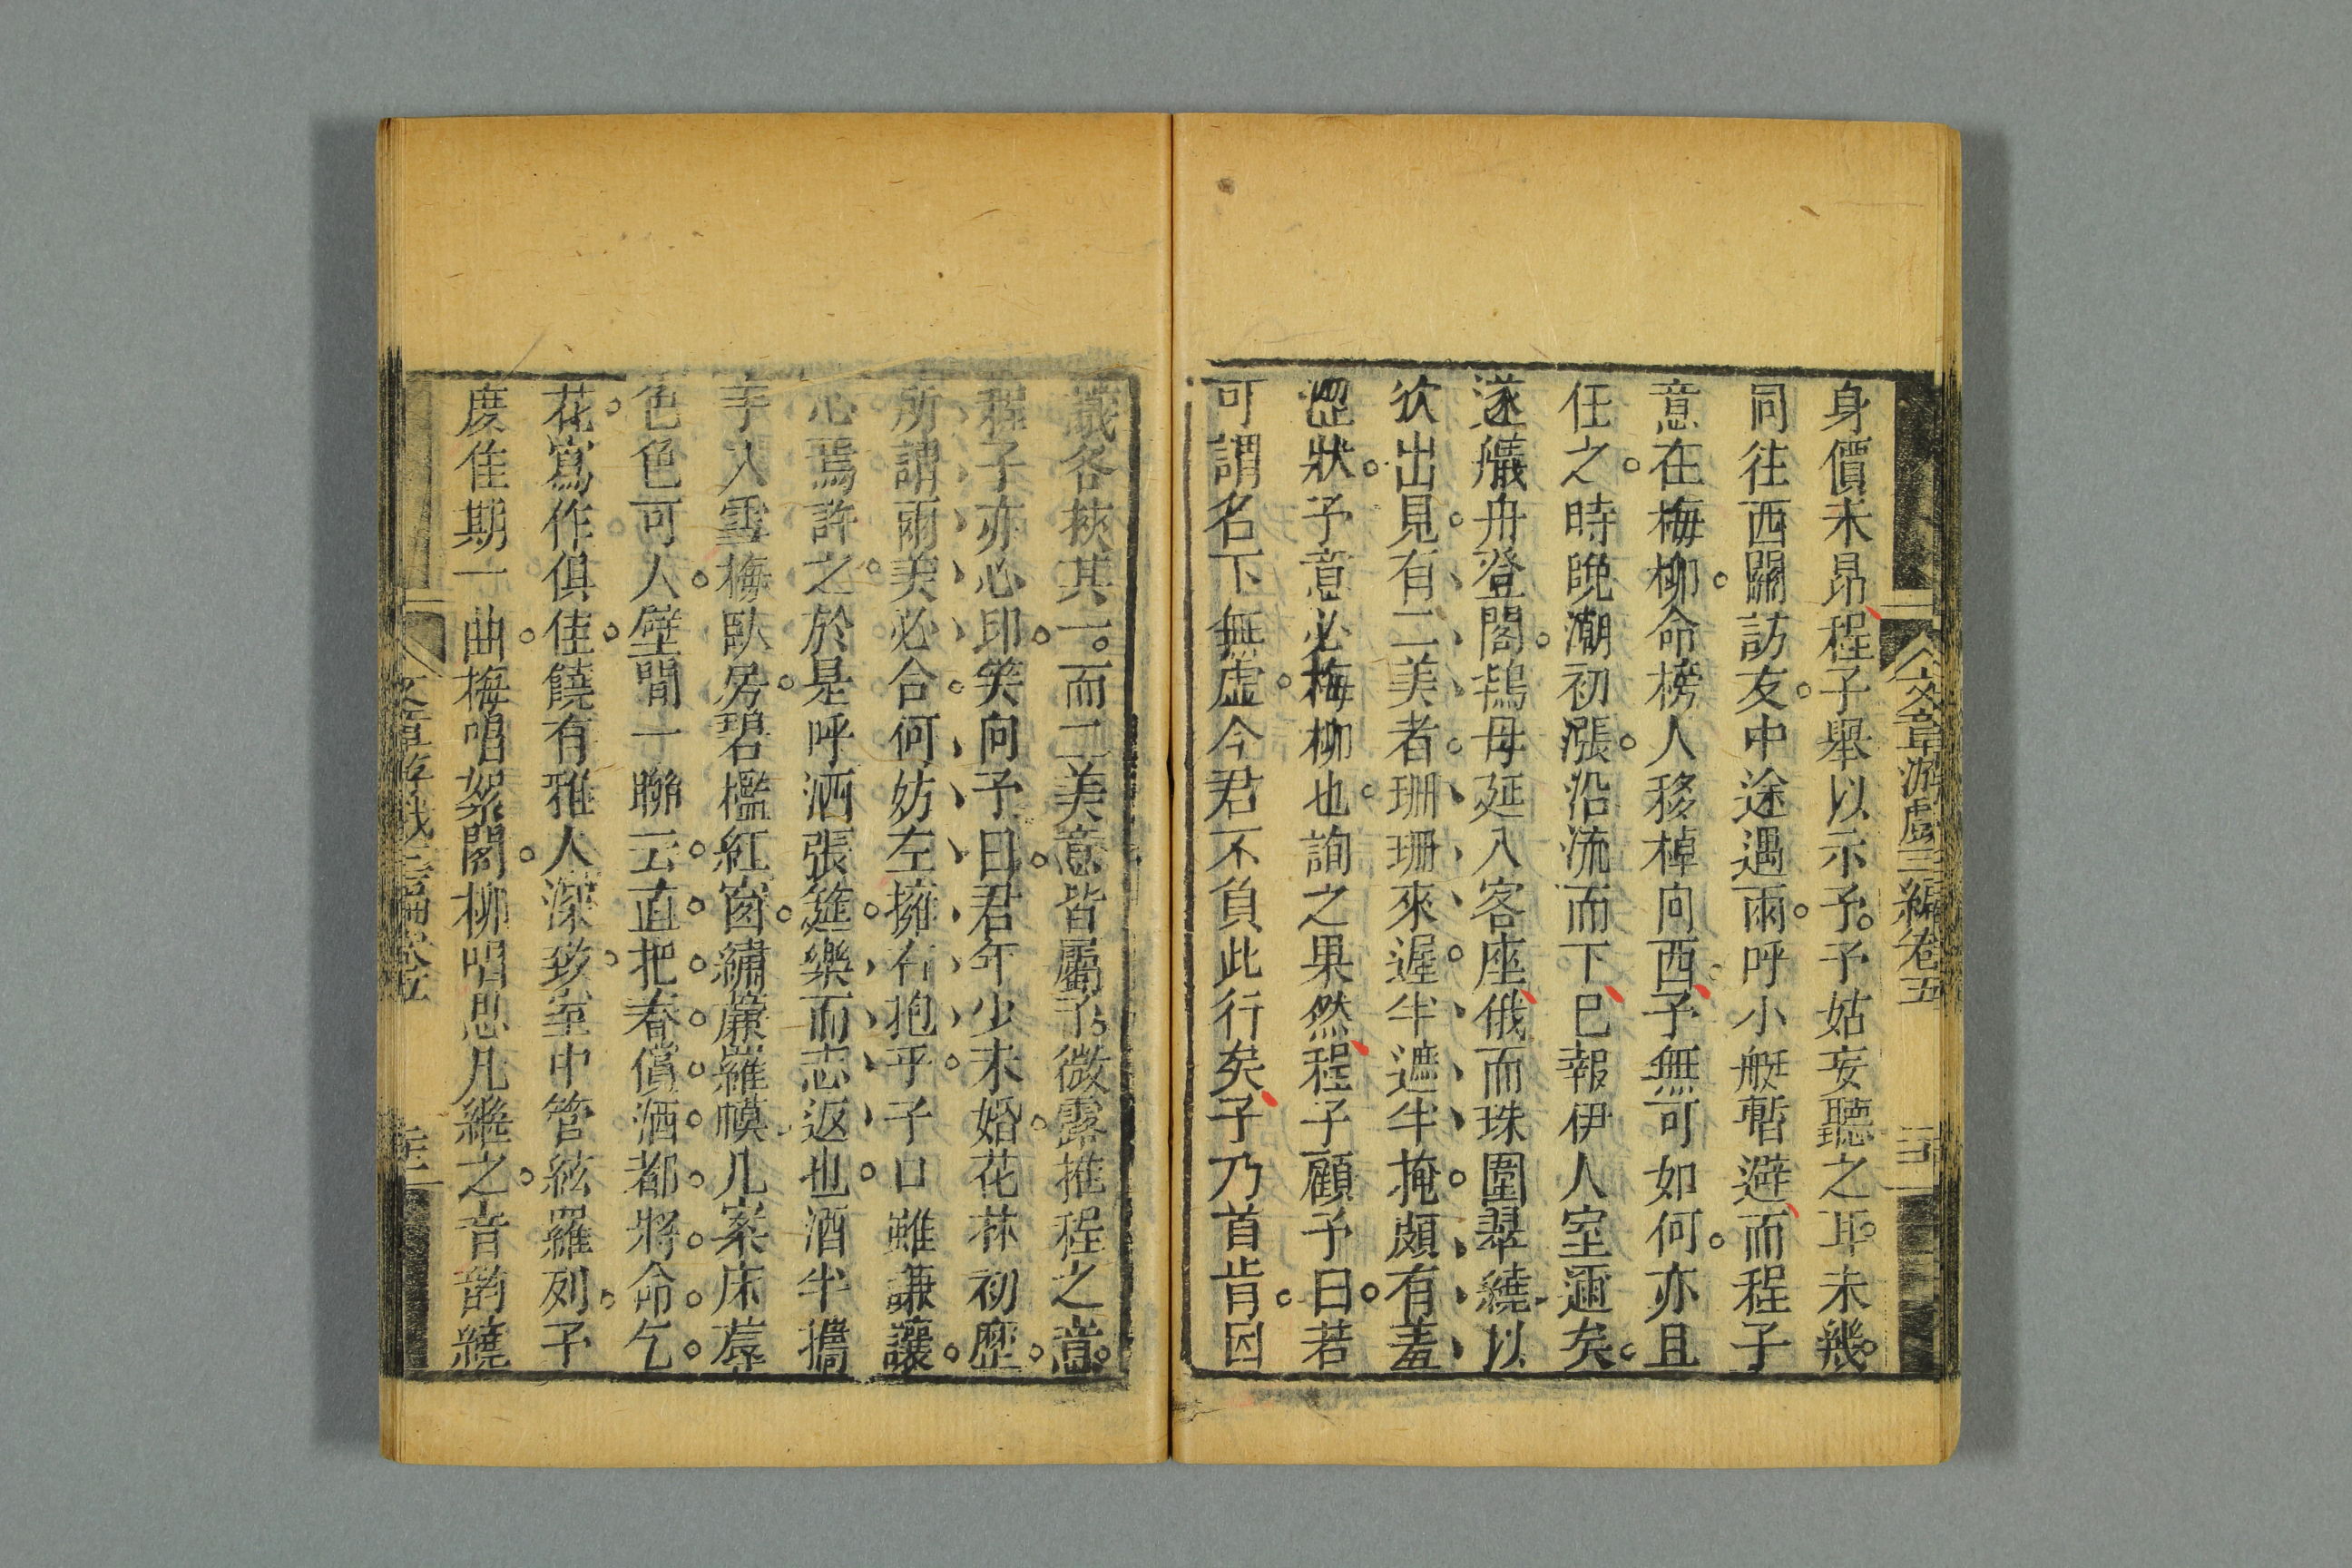 文章游戲三編卷五
身價未昂程子舉以示予予姑妄聽之耳未幾
同往西關訪友中途遇雨呼小艇暫避而程子
意在梅柳命榜人移棹向西予無可如何亦且
任之時晚潮初漲沿流而下已報伊人室邇矣
遂艤舟登閣鴇母延入客座俄而珠圍翠繞以
次出見有二美者珊珊來遲半遮半掩頗有羞
澀狀予意必梅柳也詢之果然程子顧予曰若
可謂名下無虛今君不負此行矣予乃首肯因
議各挾其一而二美意皆屬予微露推程之意
程子亦心印笑向予曰君年少未婚花林初歷
所謂兩美必合何妨左擁右抱乎予口雖謙讓
心焉許之於是呼酒張筵樂而忘返也酒半攜
手入雪梅臥房碧檻紅窗繡簾羅幙几案床蓐
色色可人壁間一聯云直把春償酒都將命乞
花寫作俱佳饒有雅人深致室中管絃羅列予
度佳期一曲梅唱絮閣柳唱思凡繼之音韵繞
文章游戲三編卷五